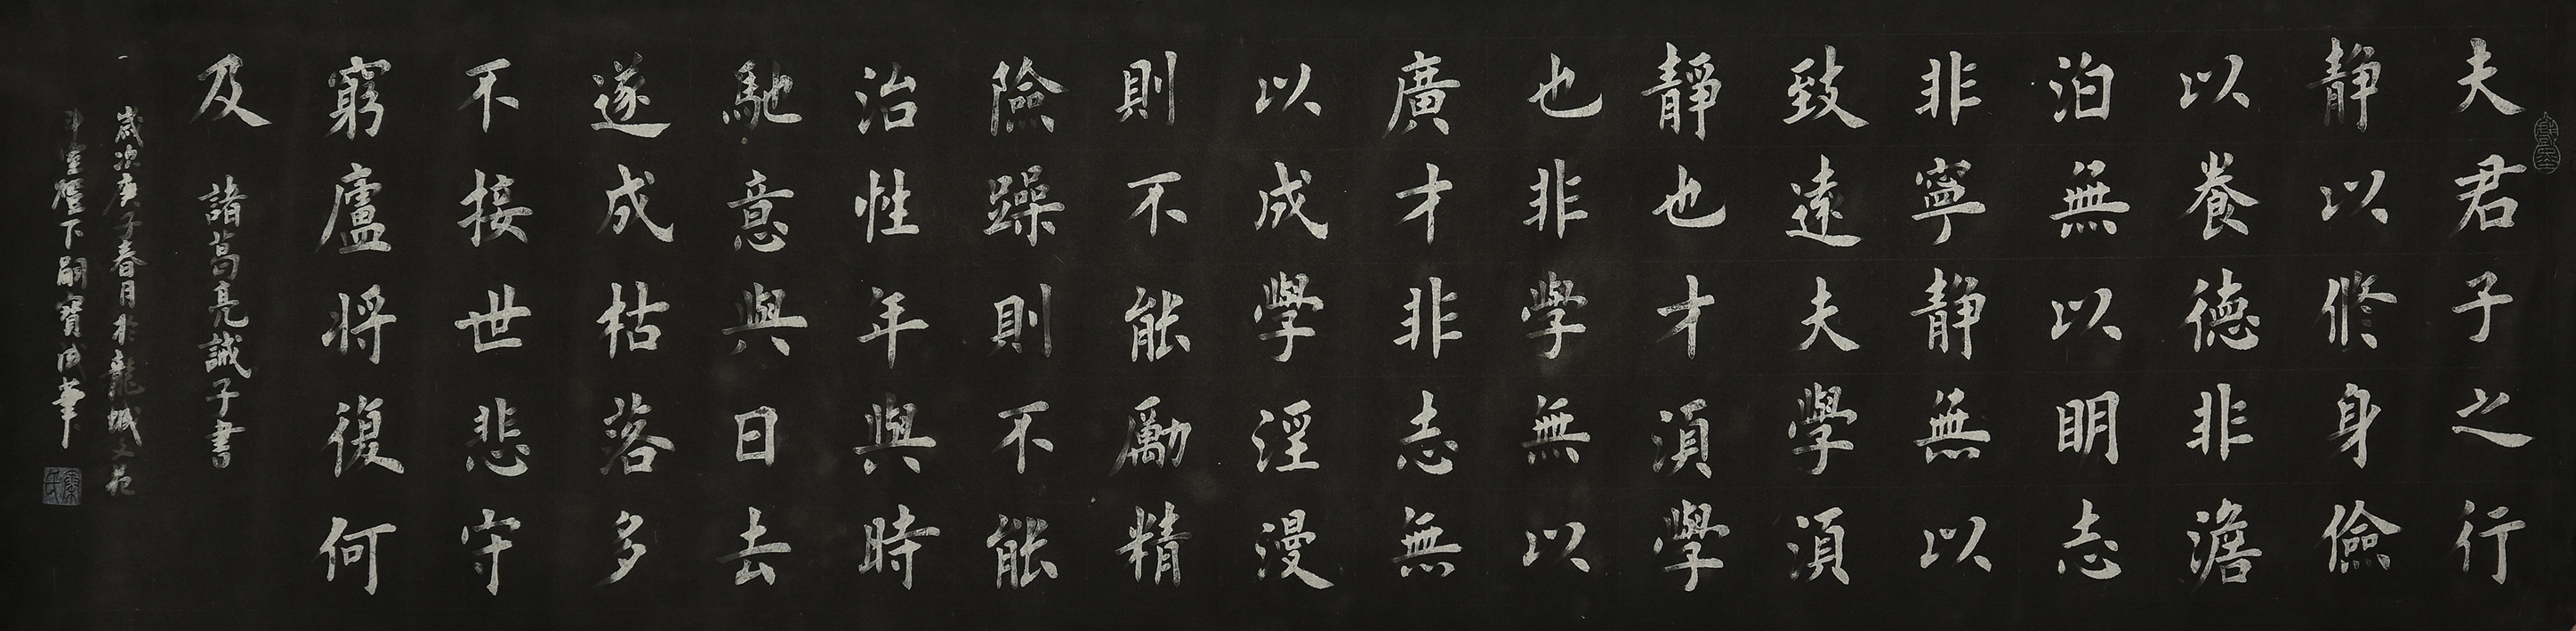 夫君子之行
静以修身儉
以養德非澹
泊無以明志
非寧静無以
致遠夫學須
靜也才須學
也非學無以
廣才非志無
以成學淫漫
則不能勵精
險躁則不能
治性年與時
馳意與日去
遂成枯落多
不接世悲守
窮廬将復何
及 諸葛亮誡子書
歲次庚子春月於龍城文苑
斗室燈下嗣寶成筆